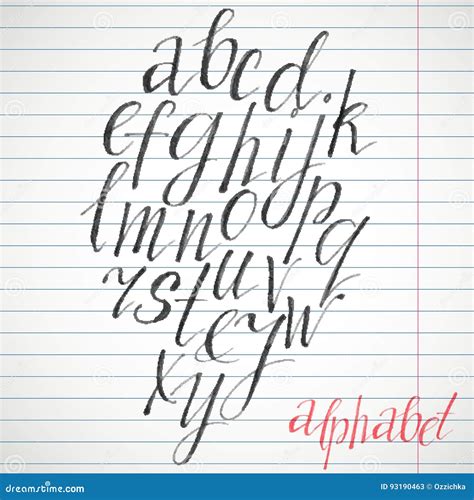 abcd.
efghijk
lmnopq
rstuv
eyw.
xy
alphabet
dreamstime.com
ID 93190463 © Ozzichka